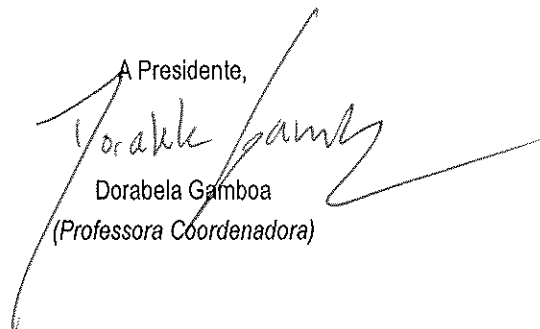 A Presidente,
Dorabela Gamboa
Dorabela Gamboa
(Professora Coordenadora)